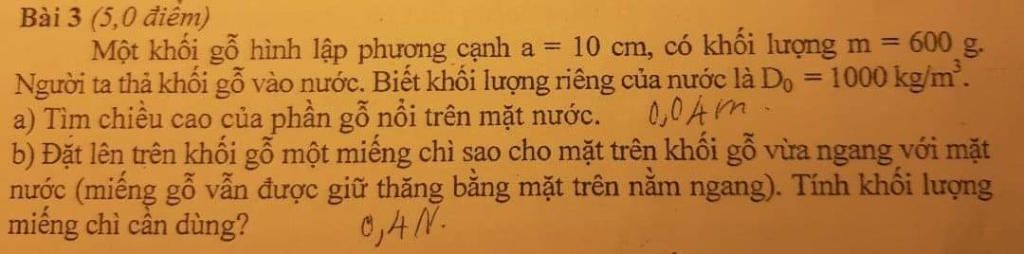 Bài 3 (5,0 điểm)
Một khối gỗ hình lập phương cạnh a = 10 cm, có khối lượng m = 600 g.
Người ta thả khối gỗ vào nước. Biết khối lượng riêng của nước là D₀ = 1000 kg/m³.
a) Tìm chiều cao của phần gỗ nổi trên mặt nước. 0,04m.
b) Đặt lên trên khối gỗ một miếng chì sao cho mặt trên khối gỗ vừa ngang với mặt
nước (miếng gỗ vẫn được giữ thăng bằng mặt trên nằm ngang). Tính khối lượng
miếng chì cần dùng? 0,4N.